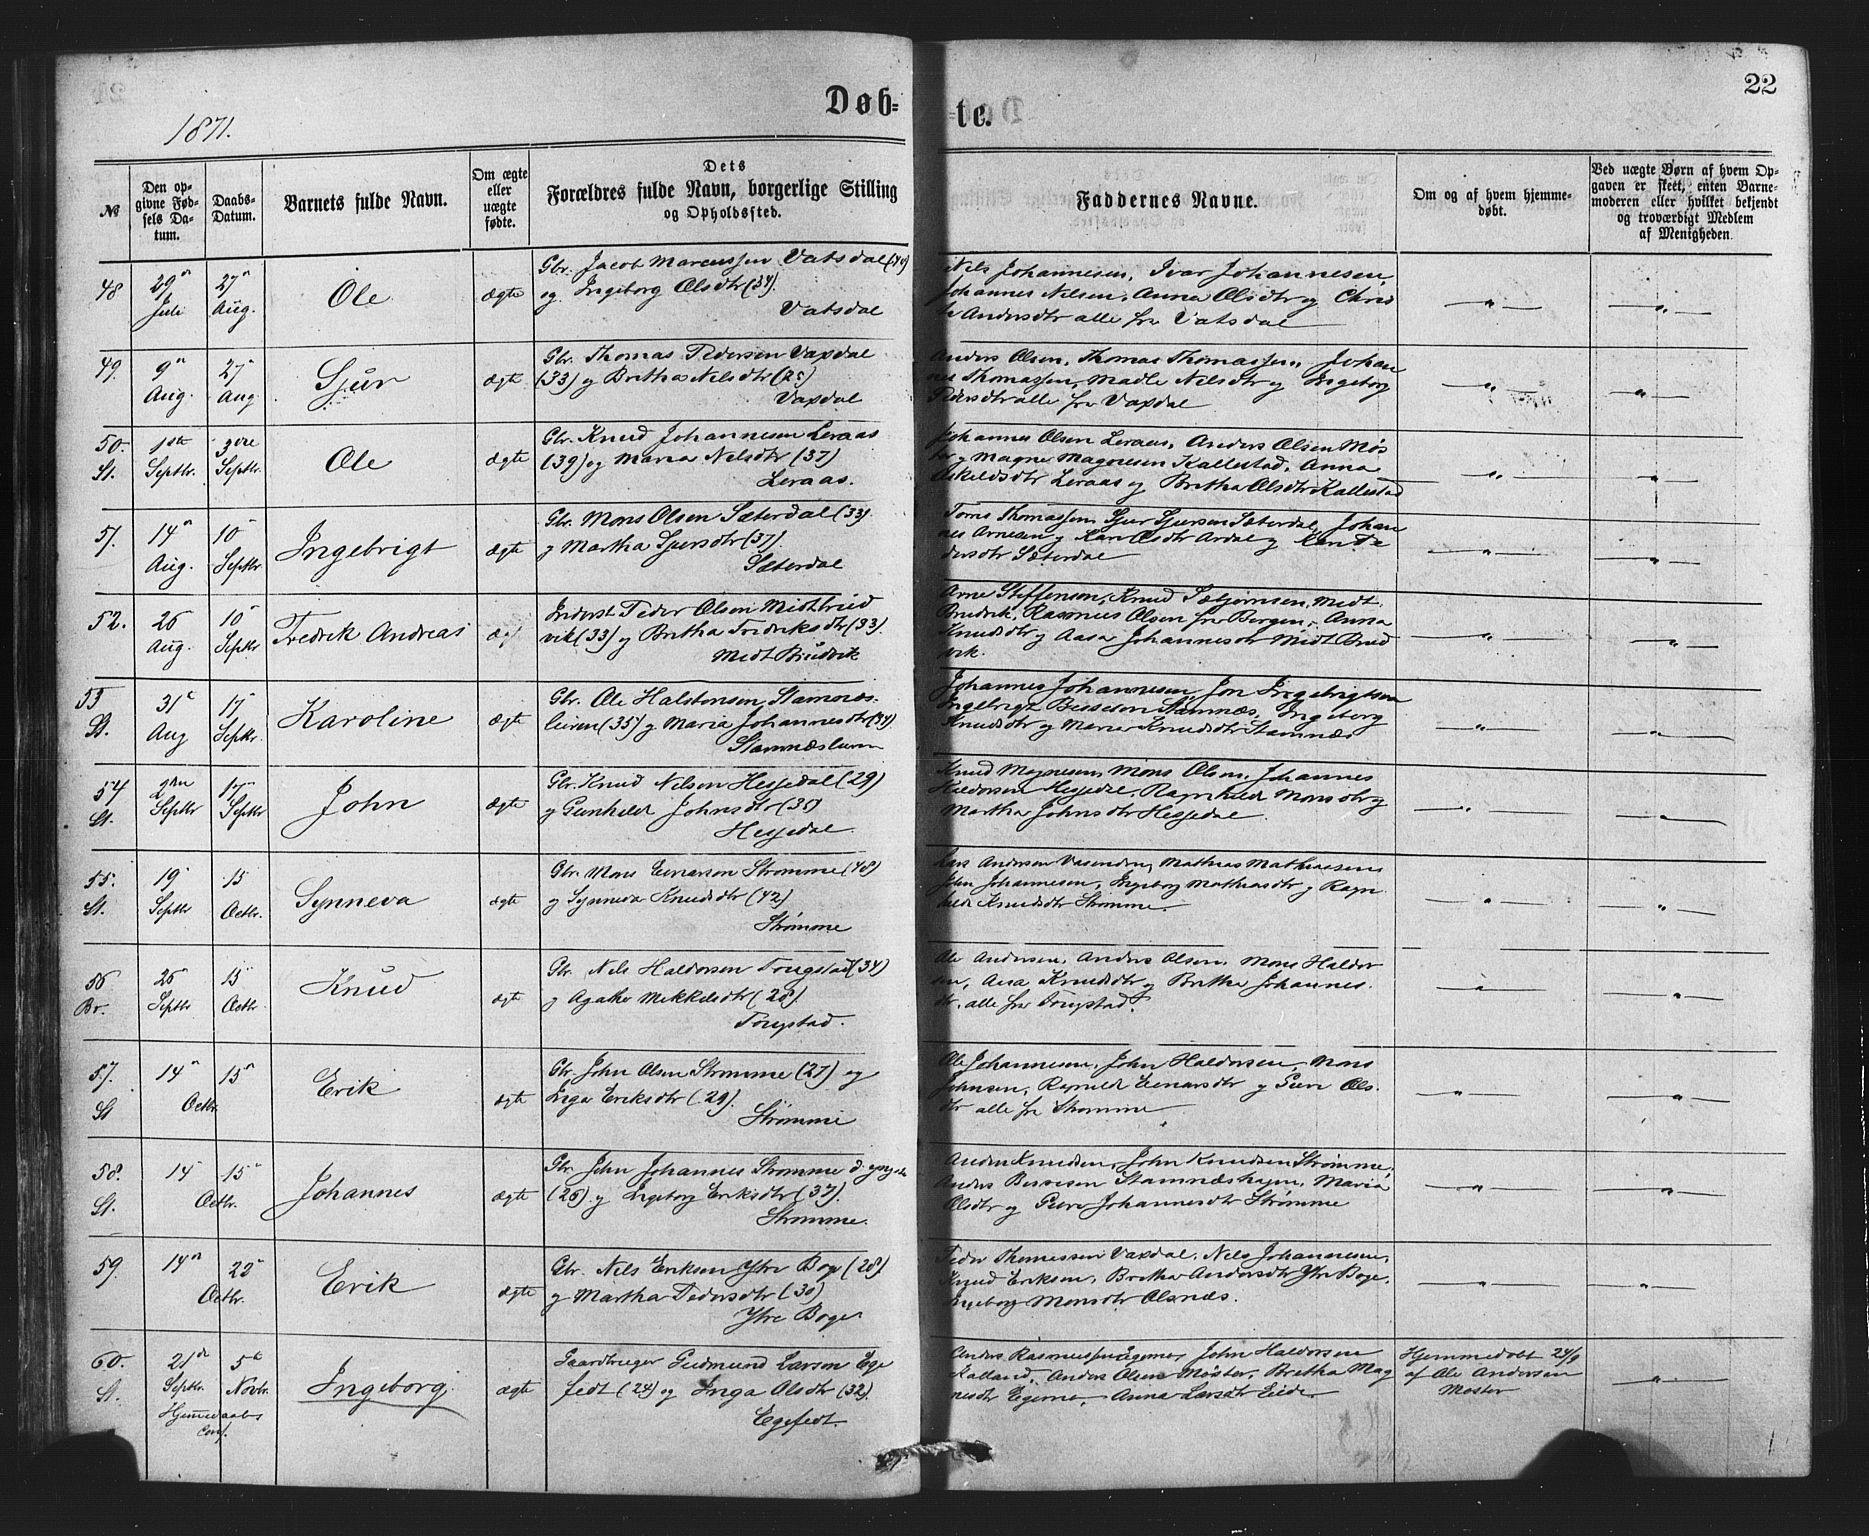 22
Døb=
te.
1871.
№
Den op-
givne Fød-
sels Da-
tum.
Daabs-
Datum.
Barnets fulde Navn.
Om ægte
eller
uægte
fødte.
Dets
Forældres fulde Navn, borgerlige Stilling
og Opholdssted.
Faddernes Navne.
Om og af hvem hjemme-
døbt.
Ved uægte Børn af hvem Op-
gaven er skeet, enten Barne-
moderen eller hvilket bekjendt
og troværdigt Medlem
af Menigheden.
48
29n
Juli
27n
Aug.
Ole
ægte
Gbr. Jacob Marcussen Vatsdal (40)
og Ingeborg Olsdtr (34).
Vatsdal
Nils Johannesen, Ivar Johannesen
Johannes Nilsen, Anna Olsdtr og
Andersdtr alle fra Vatsdal
49.
9n
Aug.
27
Aug
Sjur
ægte
Gbr. Thomas Pedersen Vaxdal
(33) og Britha Nilsdtr
Vaxdal
Anders Olsen, Thomas Thomassen, Johan
nes Thomassen, Madle Nilsdtr og Ingeborg
Pedersdtr alle fra Vaxdal
50.
St.
1ste
Septbr.
3die
Septbr.
Ole
ægte
Gbr. Knud Johannesen Leraas
(39) og Maria Nilsdtr (37)
Leraas.
Johannes Olsen Leraas, Anders Olsen Møs
ter og Magne Magnesen Kallestad, Anna
Leraas og Britha Olsdtr Kallestad
51.
14n
Aug.
10
Septbr
Ingebrigt
ægte
Gbr. Mons Olsen Sæterdal (33)
og Martha Sjursdtr (37).
Sæterdal
Thomassen, Sjur Sjursen Sæterdal, Johan
nes Arnesen og Kari Olsdtr Ardal og Kari Pe
dersdtr Sæterdal
52.
26
Aug.
10
Septbr
Fredrik Andreas
ægt
Inderst Peder Olsen Midtbrud
vik (33) og Britha Fredriksdtr (33).
Midt Brudvik
Arne Steffensen, Knud Midt
Brudvik, Rasmus Olsen fra Bergen, Anna
Knudsdtr og Aasa Johannesdtr Midt Brud
vik.
53
St.
31te
Aug
17
Septbr.
Karoline
ægte
Gbr. Ole Halstensen Stamnes
leiren (35) og Maria Johannesdtr (34)
Stamnæsleiren
Johannes Johannesen, Jon Ingebrigtsen
Ingebrigt Stamnæs, Ingeborg
Knudsdtr og Maria Knudsdtr Stamnæs
54
St.
2den
Septbr
17
Septbr
John
ægte
Gbr. Knud Nilsen Hesjedal (29)
og Gunhild Johnsdtr (35)
Hesjedal
Knud Magnesen, Mons Olsen, Johannes
Haldorsen Hesjedal, Ragnhild Monsdtr og
Martha Johnsdtr Hesjedal.
55.
St.
19
Septbr
15
Octbr.
Synneva
ægte
Gbr. Mons Einarsen Strømme (48)
og Synneva Knudsdtr (42)
Strømme
Lars Andersen Vasenden, Mathias Mathiassen
John Johannesen, Ingeborg Mathiasdtr og Ragn
hild Knudsdtr Strømme.
56
Br.
26
Septbr
15
Octbr.
Knud
ægte
Gbr. Nils Haldorsen Tougstad (34)
og Agatha Mikkelsdtr (28)
Tougstad.
Ole Andersen, Anders Olsen, Mons Haldor
sen, Aasa Knudsdtr og Britha Johannes
dtr, alle fra Tougstad.
57.
St
14n
15n
Octbr.
Erik
ægte
Gbr. John Olsen Strømme (27) og
Inga Eriksdtr (29).
Strømme
Ole Johannesen, John Haldorsen, Mons
Johnsen, Ragnild Einarsdtr og Guri Ols
dtr alle fra Strømme
58.
St.
14
15
Octbr.
Johannes
ægte
Gbr. John Johannes Strømme d. yngste
(26) og Ingeborg Eriksdtr (37)
Strømme.
Anders Knudsen, John Knudsen Strømme,
Anders Stamnæshejen, Maria
Olsdtr og Guri Johannesdtr Strømme
59.
14n
22
Octbr.
Erik
ægte
Gbr. Nils Eriksen Ytre Boge (28)
og Martha Pedersdtr (30)
Ytre Boge
Peder Thomassen Vaxdal, Nils Johannesen,
Knud Eriksen, Britha Andersdtr Ytre Boge,
Ingeborg Monsdtr Olsnæs.
60.
St.
21de
Septbr.
Hjemmedaabs
Conf.
5te
Novbr.
Ingeborg
ægte
Gaardbruger Gudmund Larsen Ege
fedt (24) og Inga Olsdtr (32).
Egefedt.
Anders Rasmussen Egerne, John Haldorsen
Kalland, Anders Olsen Møster, Britha Mag
nesdtr Egerne, Anna Larsdtr Eide.
Hjemmedøbt 24/9
af Ole Andersen
Møster